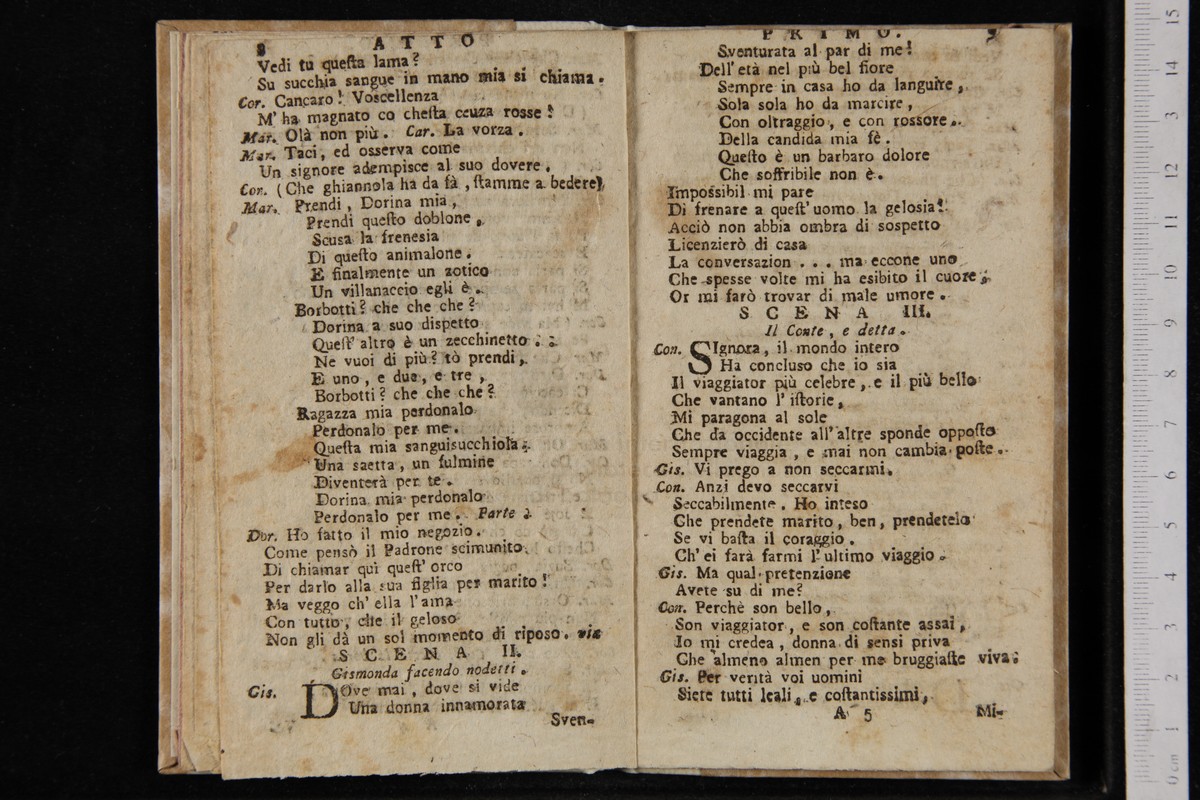 8 ATTO
Vedi tu queſta lama?
Su succhia sangue in mano mia si chiama.
Cor. Cancaro! Voscellenza
M' ha magnato co cheſta ceuza rosse!
Mar. Olà non più. Car. La vorza.
Mar. Taci, ed osserva come
Un signore adempisce al suo dovere.
Cor. (Che ghiannola ha da fà, ſtamme a bedere)
Mar. Prendi, Dorina mia,
Prendi queſto doblone,
Scusa la frenesia
Di queſto animalone.
E finalmente un zotico
Un villanaccio egli è.
Borbotti? che che che?
Dorina a suo dispetto
Queſt' altro è un zecchinetto.
Ne vuoi di più? tò prendi,
E uno, e due, e tre,
Borbotti? che che che?
Ragazza mia perdonalo
Perdonalo per me.
Queſta mia sanguisucchiola
Una saetta, un fulmine
Diventerà per te.
Dorina mia perdonalo
Perdonalo per me. Parte
Dor. Ho fatto il mio negozio.
Come pensò il Padrone scimunito
Di chiamar quì queſt' orco
Per darlo alla sua figlia per marito!
Ma veggo ch' ella l' ama
Con tutto, che il geloso
Non gli dà un sol momento di riposo. via
SCENA II.
Gismonda facendo nodetti.
Gis. DOve mai, dove si vide
Una donna innamorata
Sven-
PRIMO. 9
Sventurata al par di me!
Dell' età nel più bel fiore
Sempre in casa ho da languire,
Sola sola ho da marcire,
Con oltraggio, e con rossore.
Della candida mia fè.
Queſto è un barbaro dolore
Che soffribile non è.
Impossibil mi pare
Di frenare a queſt' uomo la gelosia!
Acciò non abbia ombra di sospetto
Licenzierò di casa
La conversazion . . . ma eccone uno
Che spesse volte mi ha esibito il cuore;
Or mi farò trovar di male umore.
SCENA III.
Il Conte, e detta.
Con. SIgnora, il mondo intero
Ha concluso che io sia
Il viaggiator più celebre, e il più bello
Che vantano l' iſtorie,
Mi paragona al sole
Che da occidente all' altre sponde oppoſto
Sempre viaggia, e mai non cambia poſte.
Gis. Vi prego a non seccarmi.
Con. Anzi devo seccarvi
Seccabilmente. Ho inteso
Che prendete marito, ben, prendetelo
Se vi baſta il coraggio.
Ch' ei farà farmi l' ultimo viaggio.
Gis. Ma qual pretenzione
Avete su di me?
Con. Perchè son bello,
Son viaggiator, e son coſtante assai,
Io mi credea, donna di sensi priva
Che almeno almen per me bruggiaſte viva.
Gis. Per verità voi uomini
Siete tutti leali, e coſtantissimi,
A 5 Mi-